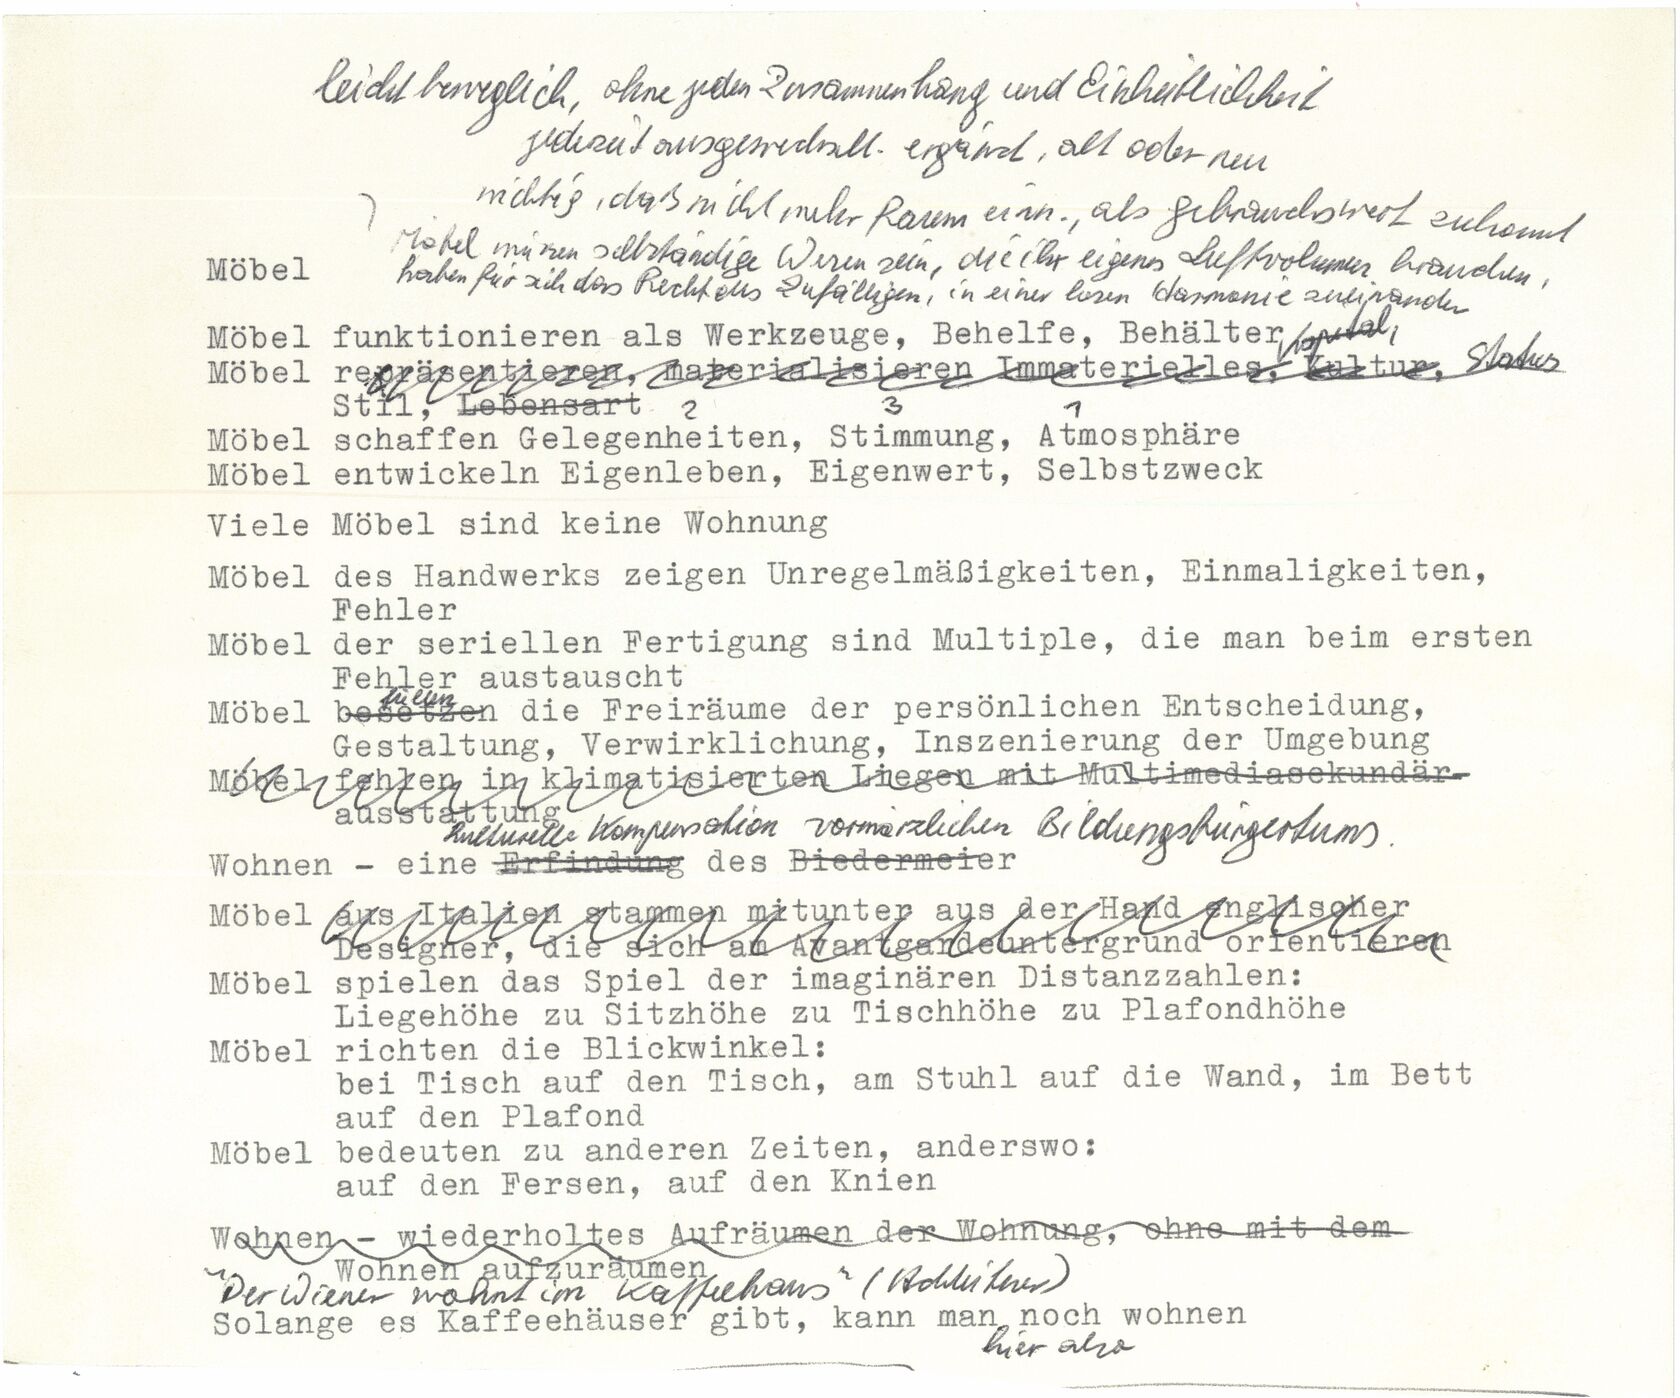 leicht beweglich, ohne jeden Zusammenhang und Einheitlichkeit
jederzeit ausgewechselt. ergänzt, alt oder neu
wichtig, daß nicht mehr Raum einn., als gebrauchswert zukommt
Möbel müssen selbständige Wesen sein, die ihr eigenes Luftvolumen brauchen,
Möbel
haben für sich das Recht des Zufälligen, in einer losen Harmonie zueinander
Möbel funktionieren als Werkzeuge, Behelfe, Behälter,
Möbel repräsentieren, materialisieren Immaterielles, Kultur, Status
Stil, Lebensart
2 3 1
Möbel schaffen Gelegenheiten, Stimmung, Atmosphäre
Möbel entwickeln Eigenleben, Eigenwert, Selbstzweck
Viele Möbel sind keine Wohnung
Möbel des Handwerks zeigen Unregelmäßigkeiten, Einmaligkeiten,
Fehler
Möbel der seriellen Fertigung sind Multiple, die man beim ersten
Fehler austauscht
füllen
Möbel besetzen die Freiräume der persönlichen Entscheidung,
Gestaltung, Verwirklichung, Inszenierung der Umgebung
Möbel fehlen in klimatisierten Liegen mit Multimediasekundär-
ausstattung
kulturelle Kompensation vormärzlichen Bildungsbürgertums.
Wohnen - eine Erfindung des Biedermeier
Möbel aus Italien stammen mitunter aus der Hand englischer
Designer, die sich am Avantgardeuntergrund orientieren
Möbel spielen das Spiel der imaginären Distanzzahlen:
Liegehöhe zu Sitzhöhe zu Tischhöhe zu Plafondhöhe
Möbel richten die Blickwinkel:
bei Tisch auf den Tisch, am Stuhl auf die Wand, im Bett
auf den Plafond
Möbel bedeuten zu anderen Zeiten, anderswo:
auf den Fersen, auf den Knien
Wohnen - wiederholtes Aufräumen der Wohnung, ohne mit dem
Wohnen aufzuräumen
"Der Wiener wohnt im Kaffeehaus" (Achleitner)
Solange es Kaffeehäuser gibt, kann man noch wohnen
hier also